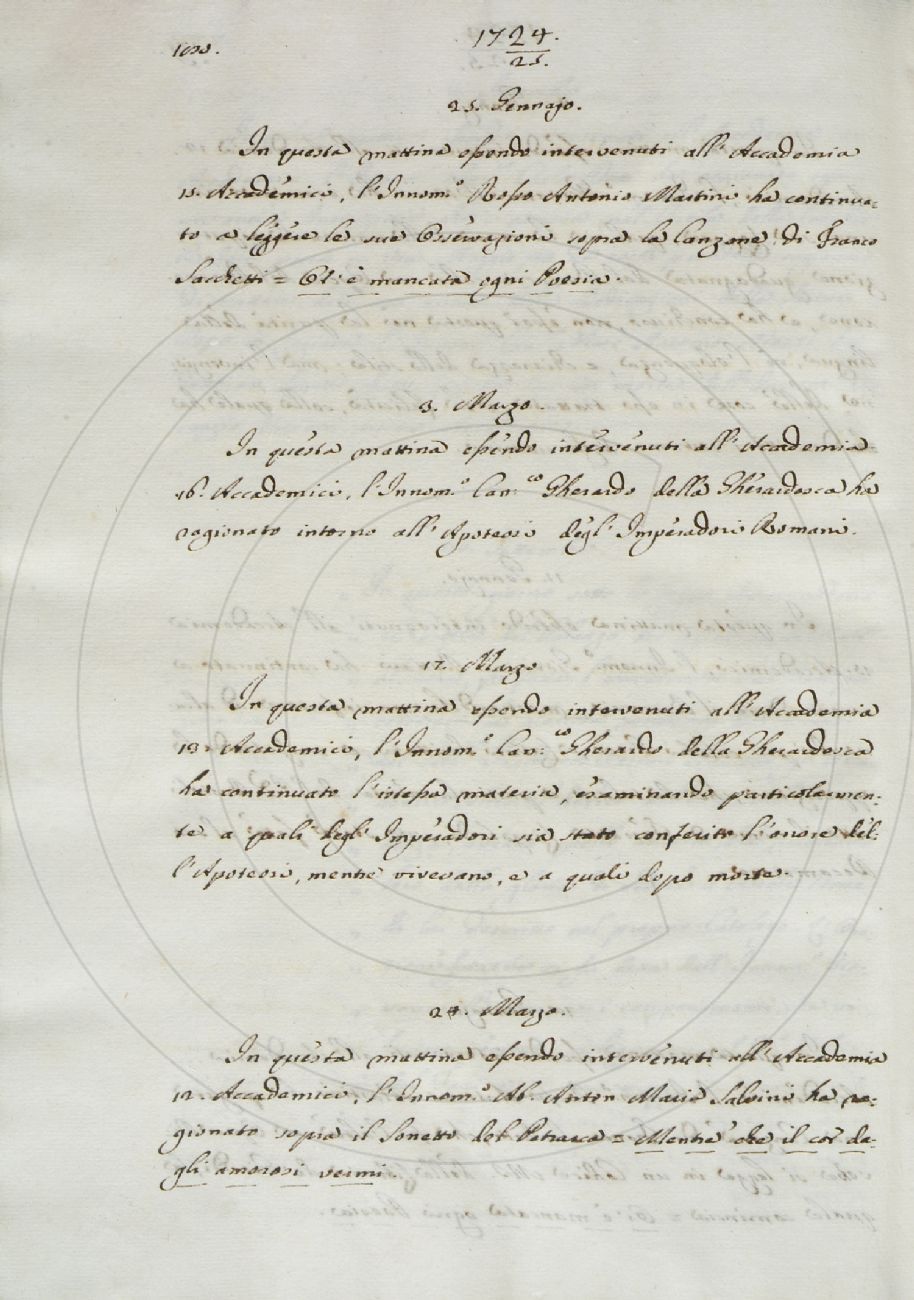 1724.
25.
25. Gennajo.
In questa mattina essendo intervenuti all' Accademia
15. Accademici, l'Innom.º Rosso Antonio Martini ha continua-
to a leggere le sue Osservazioni sopra la Canzone di Franco
Sacchetti = Or è mancata ogni Poesia.
3. Marzo.
In questa mattina essendo intervenuti all' Accademia
16. Accademici, l'Innom.º Can.co Gherardo della Gherardesca ha
ragionato intorno all' Apoteosi degl' Imperadori Romani.
17. Marzo
In questa mattina essendo intervenuti all' Accademia
13. Accademici, l'Innom.º Can.co Gherardo della Gherardesca
ha continuato l'istessa materia, esaminando particolarmen-
te a quali degl' Imperadori sia stato conferito l'onore del-
l'Apoteosi, mentre vivevano, e a quali dopo morte.
24. Marzo.
In questa mattina essendo intervenuti all' Accademia
12. Accademici, l'Innom.º Ab. Anton Maria Salvini ha ra-
gionato sopra il Sonetto del Petrarca = Mentre che il cor da-
gli amorosi vermi.